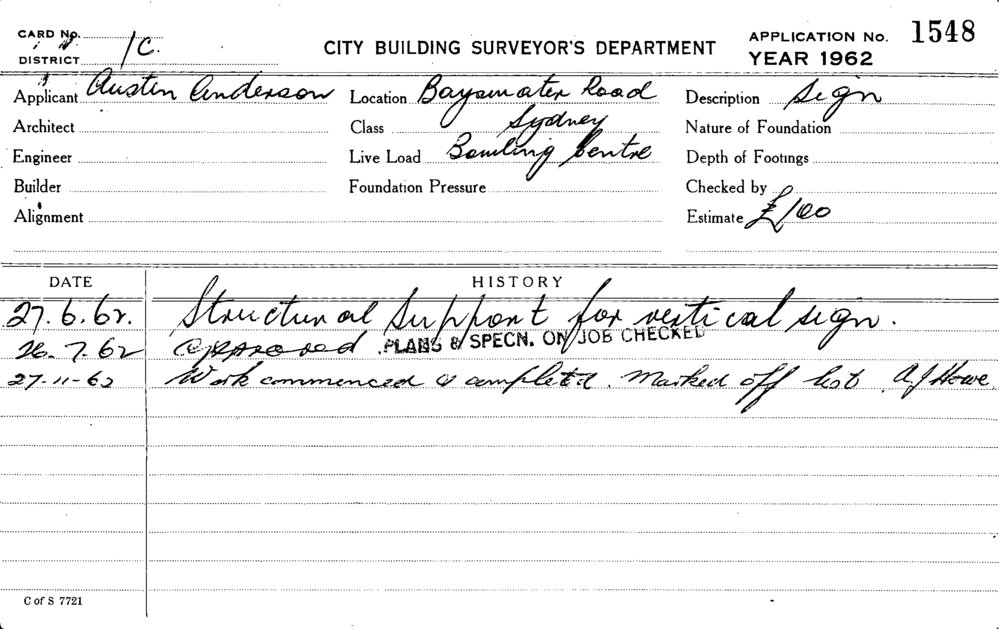 CARD No. CITY BUILDING SURVEYOR'S DEPARTMENT APPLICATION No. 1548
DISTRICT 1C. YEAR 1962
Applicant Austin Anderson Location Bayswater Road Description Sign
Architect Class Sydney Nature of Foundation
Engineer Live Load Bowling Centre Depth of Footings
Builder Foundation Pressure Checked by
Alignment Estimate £100
DATE HISTORY
27.6.62. Structural Support for vertical sign.
26.7.62 Approved PLANS & SPECN. ON JOB CHECKED
27-11-62 Work commenced & completed. Marked off list. A.J Howe.
C of S 7721